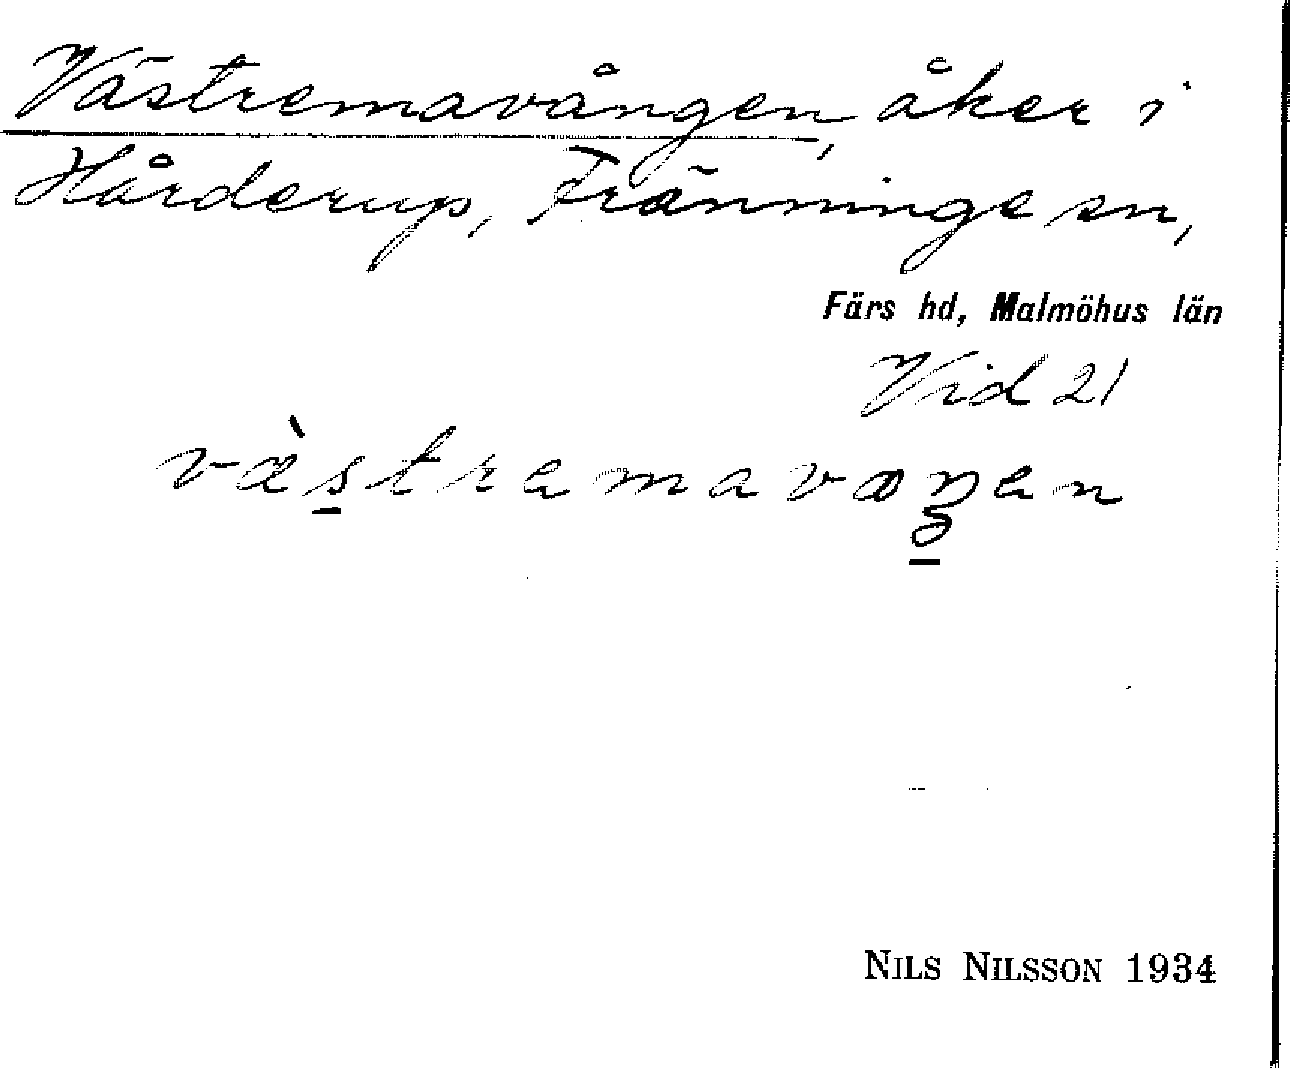 Västremavången, åker i
Hårderup, Fränninge sn,
Färs hd, Malmöhus län
Vid 21
væ̀s̠tremavaŋ̠en
NILS NILSSON 1934